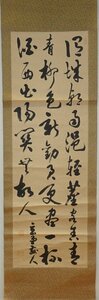 渭城朝雨浥輕塵客舍青
青柳色新勸君更盡一杯
酒西出陽關無故人